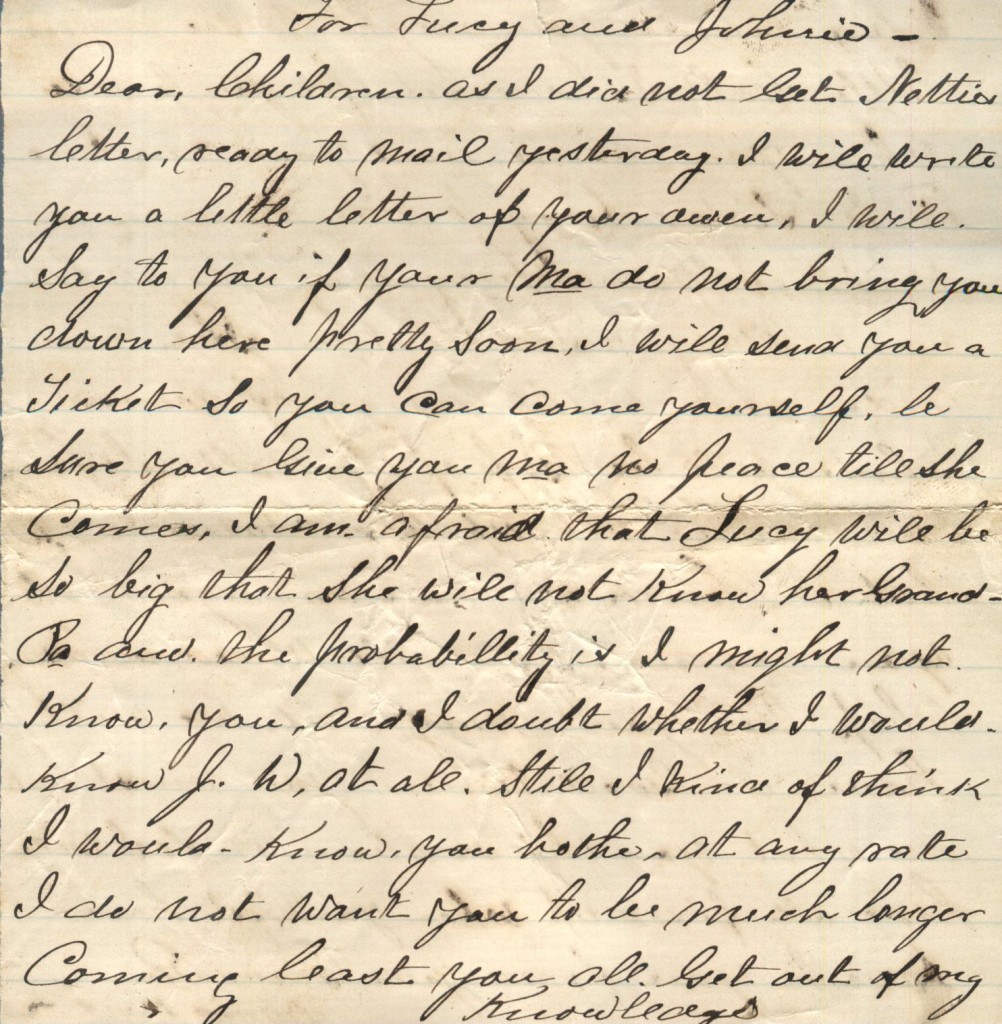 For Lucy and Johnie -
Dear, Children. as I did not Get Netties
letter, ready to mail yesterday. I will write
you a little letter of your owen, I will.
Say to you if your Ma do not bring you
down here pretty Soon, I will send you a
Ticket So you can come yourself, be
Sure you Give you ma no peace till she
Comes, I am. afraid that Lucy will be
So big that she will not Know her Grand-
Pa and. the probabillity is I might not.
Know, you, and I doubt whether I would.
Know J. W, at all. Still I Kind of think
I would - Know, you bothe, at any rate
I do not want you to be much longer
Coming least you all. Get out of my
Knowledge